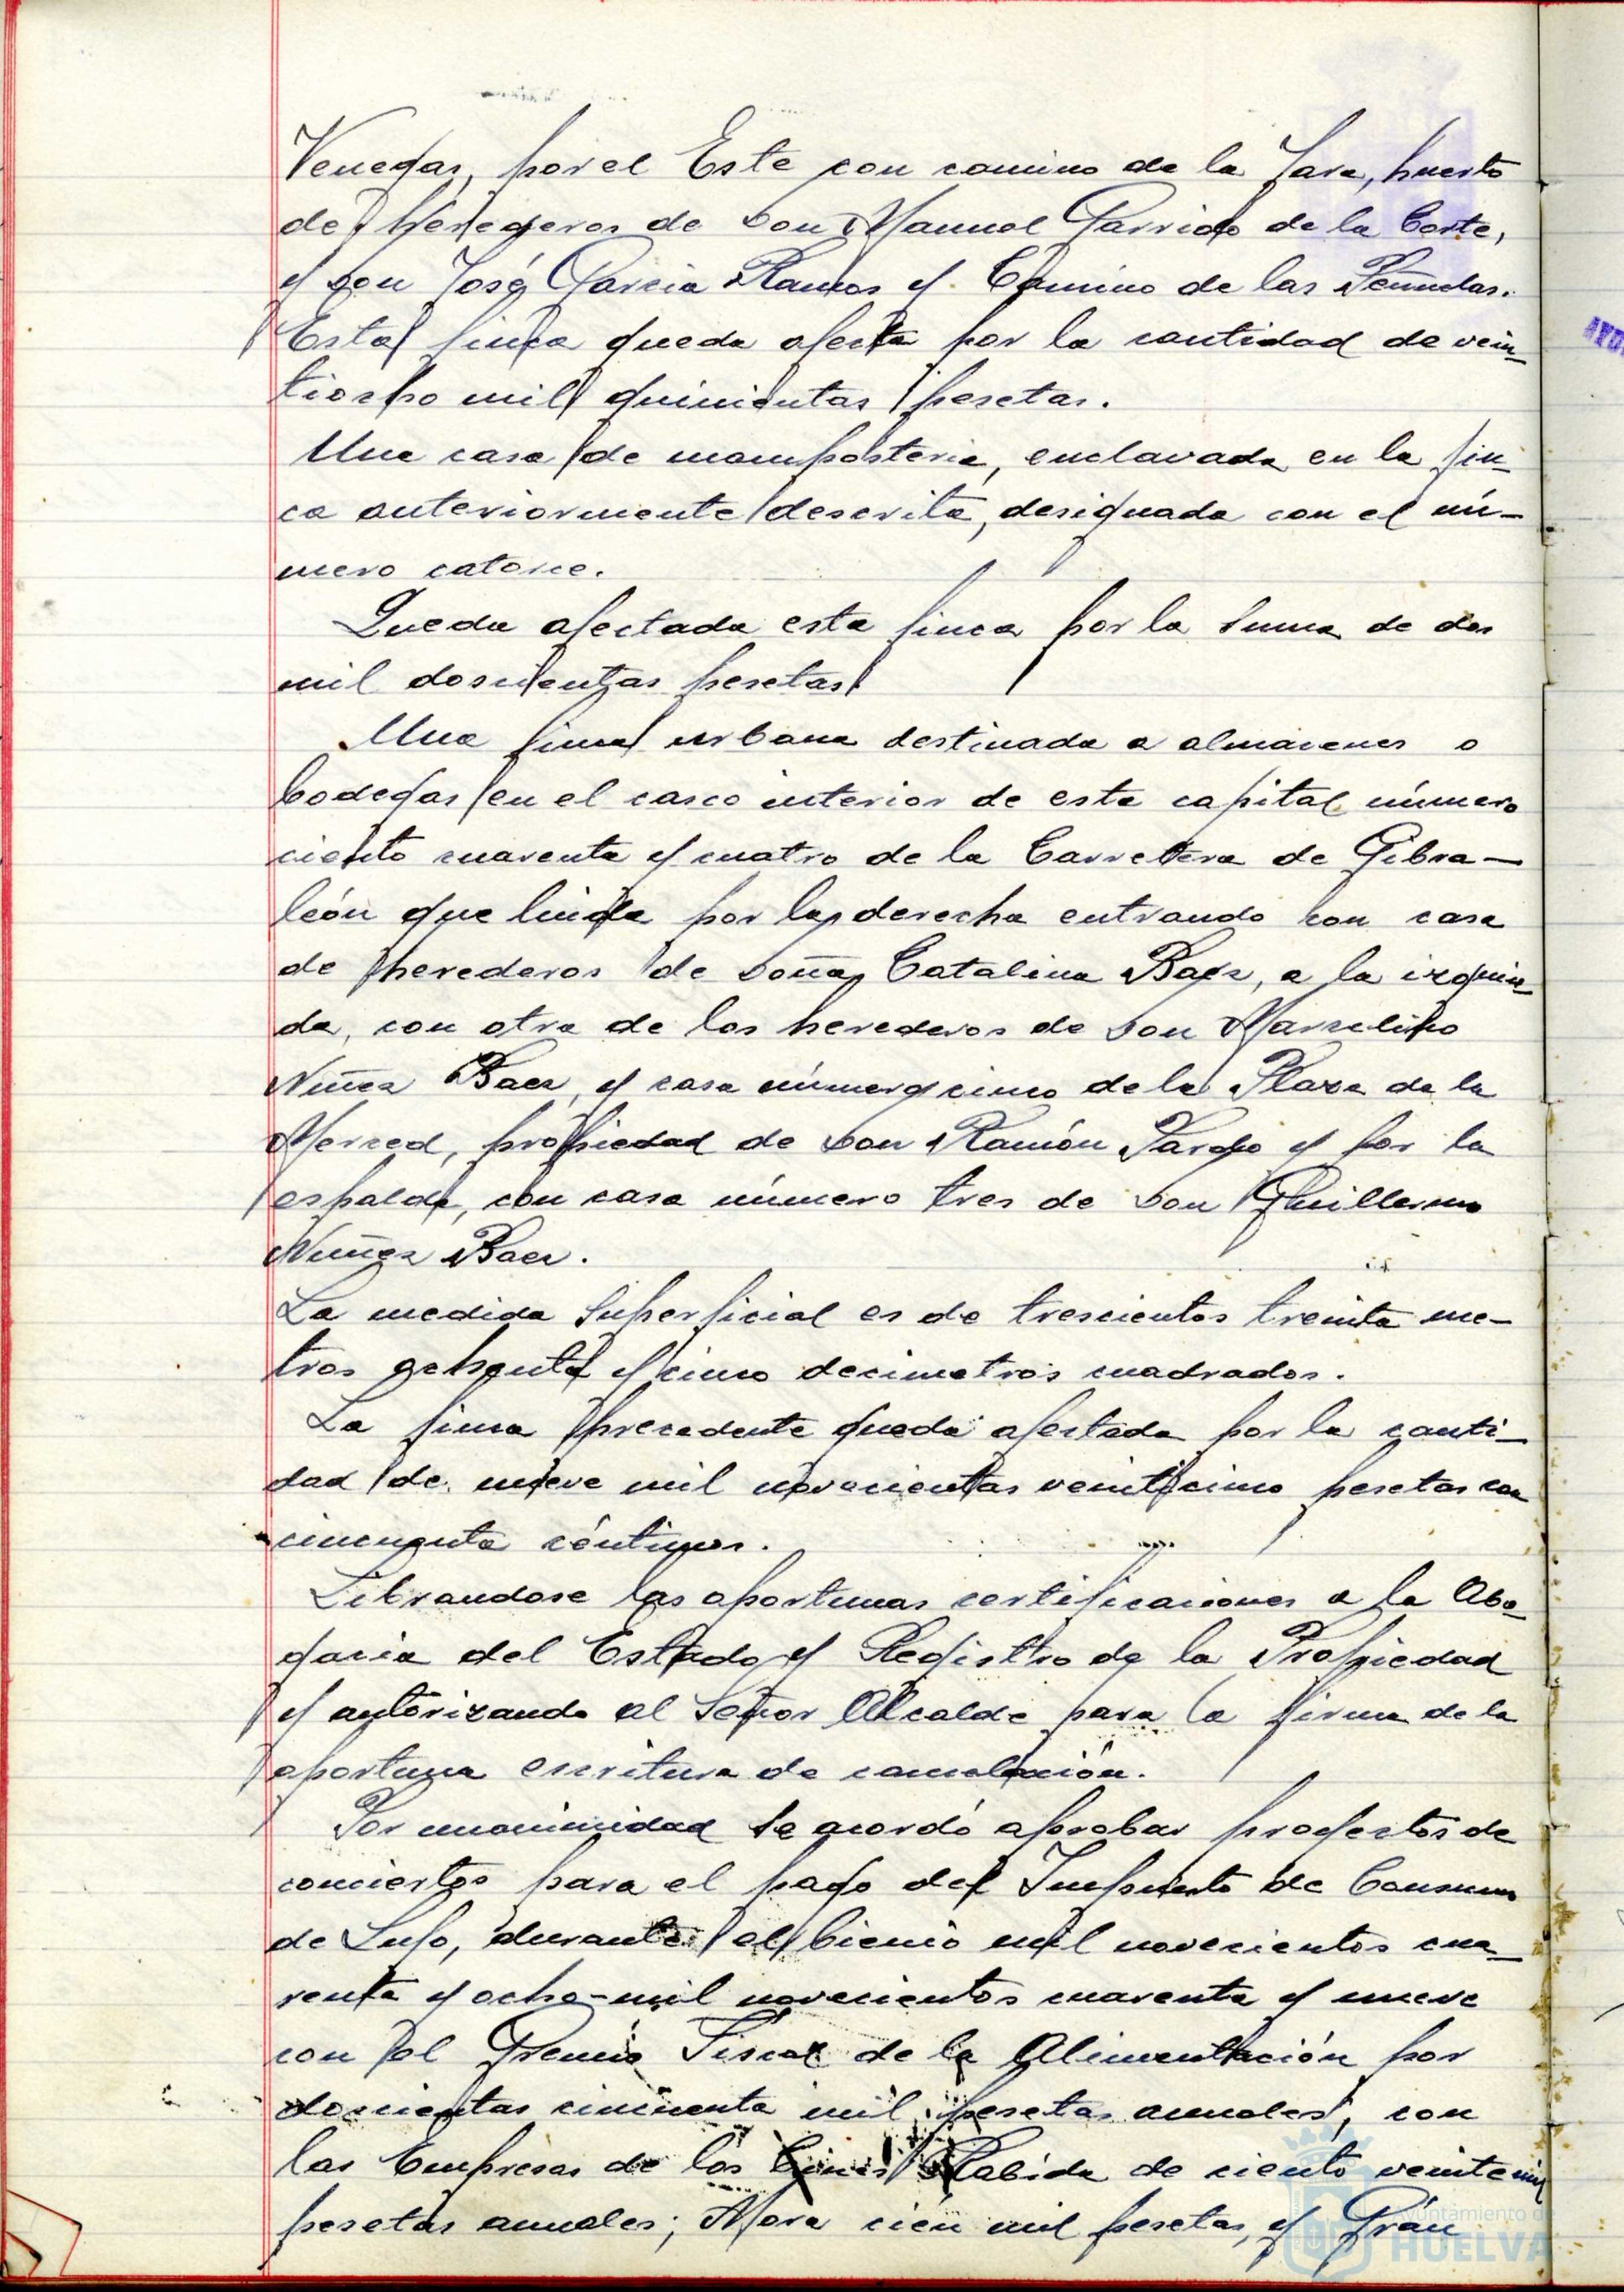 Venegas, por el Este con camino de la Jara, huerto
de Herederos de Don Manuel Garrido de la Corte,
y don José Garcia Ramos y Camino de las Peñuelas.
Esta finca queda afecta por la cantidad de vein-
tiocho mil quinientas pesetas.
Una casa de mamposteria, enclavada en la fin-
ca anteriormente descrita, designada con el nú-
mero catorce.
Queda afectada esta finca por la suma de dos
mil doscientas pesetas.
Una finca urbana destinada a almacenes o
bodegas en el casco interior de esta capital número
ciento cuarenta y cuatro de la Carretera de Gibra-
león que linda por la derecha entrando con casa
de herederos de Doña Catalina Baez, a la izquier-
da, con otra de los herederos de Don Marcelino
Nuñez Baez, y casa número cinco de la Plaza de la
Merced, propiedad de Don Ramón Pardo y por la
espalda, con casa número tres de Don Guillermo
Nuñez Baez.
La medida superficial es de trescientos treinta me-
tros ochenta y cinco decimetros cuadrados.
La finca precedente queda afectada por la canti-
dad de nueve mil novecientas veinticinco pesetas con
cincuenta céntimos.
Librandose las oportunas certificaciones a la Abo-
gacia del Estado y Registro de la Propiedad
y autorizando al Señor Alcalde para la firma de la
oportuna escritura de cancelación.
Por unanimidad se acordó aprobar proyectos de
conciertos para el pago del Impuesto de Consumo
de Lujo, durante el bienio mil novecientos cua-
renta y ocho-mil novecientos cuarenta y nueve
con el Gremio Fiscal de la Alimentación por
doscientas cincuenta mil pesetas anuales, con
las Empresas de los Cines Rabida de ciento veinte mil
pesetas anuales; Mora cien mil pesetas, y Grán
Ayuntamiento de
HUELVA